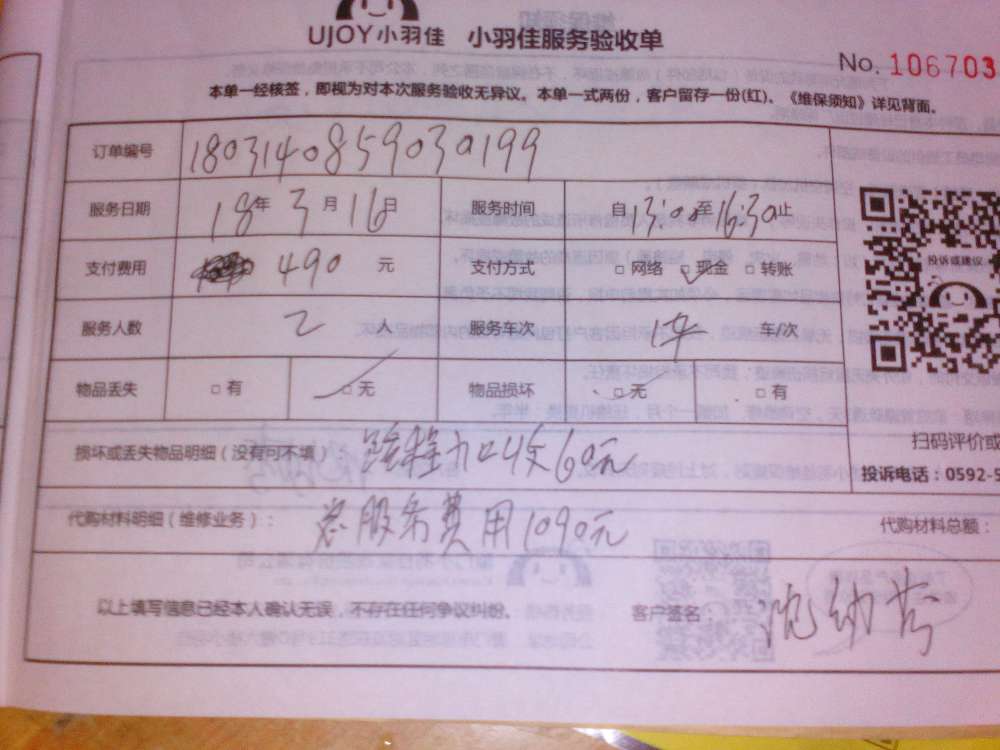 UJOY小羽佳 小羽佳服务验收单
No. 106703
本单一经核签，即视为对本次服务验收无异议。本单一式两份，客户留存一份(红)。《维保须知》详见背面。
订单编号 1803140859030199
服务日期 18年3月16日 服务时间 自13:00至16:30止
支付费用 490元 支付方式 □网络 □现金 □转账
投诉或建议
服务人数 2人 服务车次 1车/次
物品丢失 □有 □无 物品损坏 □无 □有
扫码评价或
损坏或丢失物品明细（没有可不填）： 60元
投诉电话：0592-5
代购材料明细（维修业务）： 总服务费用1090元 代购材料总额：
以上填写信息已经本人确认无误，不存在任何争议纠纷。 客户签名：